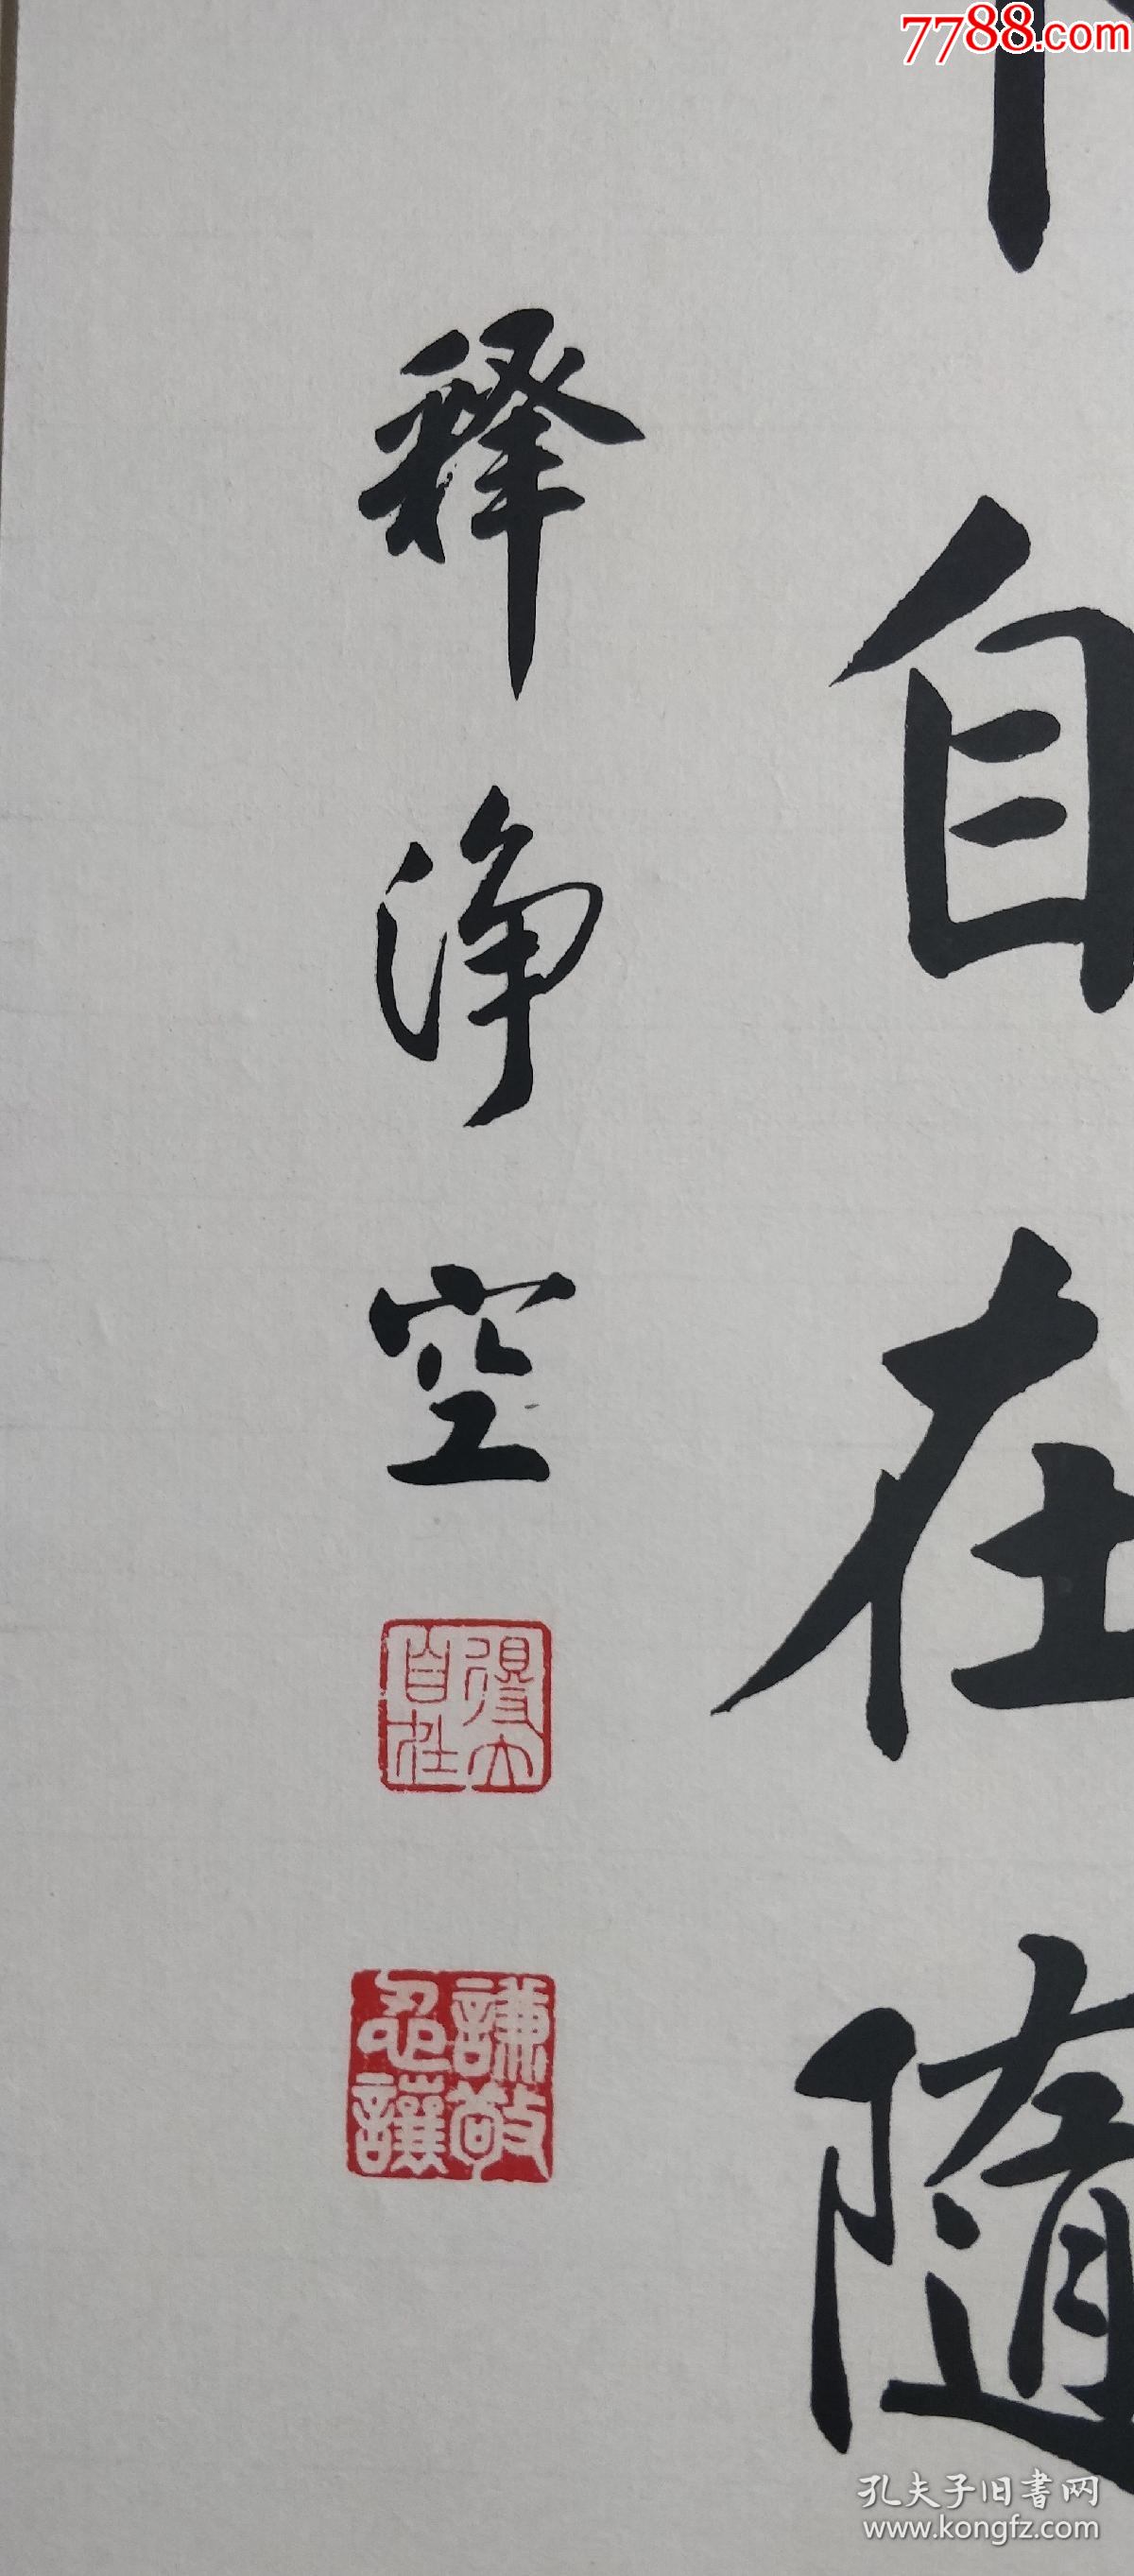 7788.com
自在随
释净空
得大自在
謙敬忍讓
孔夫子旧书网
www.kongfz.com